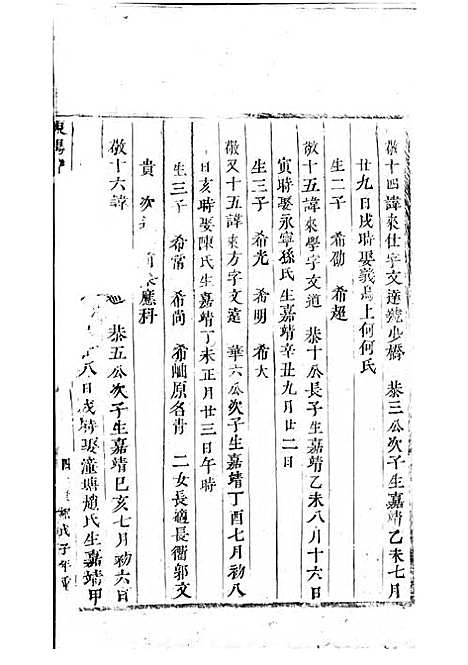 敬十四諱來仕字文達號少橋 恭三公次子生嘉靖乙未七月
廿九日戌時娶義烏上何何氏
生二子 希勔 希超
敬十五諱來學字文道 恭十公長子生嘉靖乙未八月十六日
寅時娶永寧孫氏生嘉靖辛丑九月廿二日
生三子 希光 希明 希大
敬又十五諱來方字文遠 華六公次子生嘉靖丁酉七月初八
日亥時娶陳氏生嘉靖丁未正月廿三日午時
生三子 希甯 希尚 希岫原名青 二女長適長衢郭文
貴 次 應科
敬十六諱 恭五公次子生嘉靖己亥七月初六日
八日戌時娶潼塘趙氏生嘉靖甲
東陽
四 戊子年重